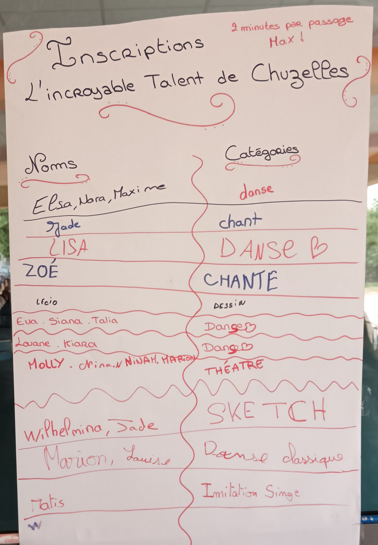 2 minutes par passage
Max !
Inscriptions
L'incroyable Talent de Chuzelles
Noms Catégories
Elsa, Nora, Maxime danse
Jade chant
LISA DANSE
ZOÉ CHANTE
DESSIN
Eva . Siana . Talia Danse
Louane . Kiara Danse
MOLLY . NINAH. MARION THÉATRE
Wilhelmina, Jade SKETCH
Marion, Louise Danse classique
Matis Imitation Singe